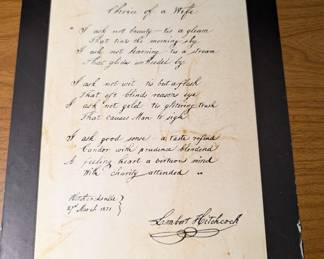 Choice of a Wife
"I ask not beauty — tis a gleam
That tints the morning sky
I ask not learning tis a stream
That glides unheeded by
I ask not wit tis but a flash
That oft blinds reasons eye
I ask not gold tis glittering trash
That causes Man to sigh
I ask good sense a taste refind
Candor with prudence blended
A feeling heart a virtuous mind
With charity attended "
Hitchcocksville }
27 March 1831 }
Lambert Hitchcock